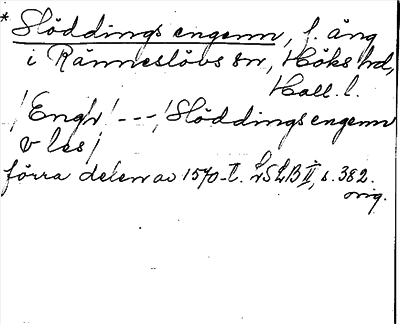 * Slöddings engenn, f. äng
i Ränneslövs sn, Höks hd,
Hall. l.
/Engh/ --- / Slöddings engenn
v les /
förra delen av 1570-t. LSLB II, s. 382.
orig.